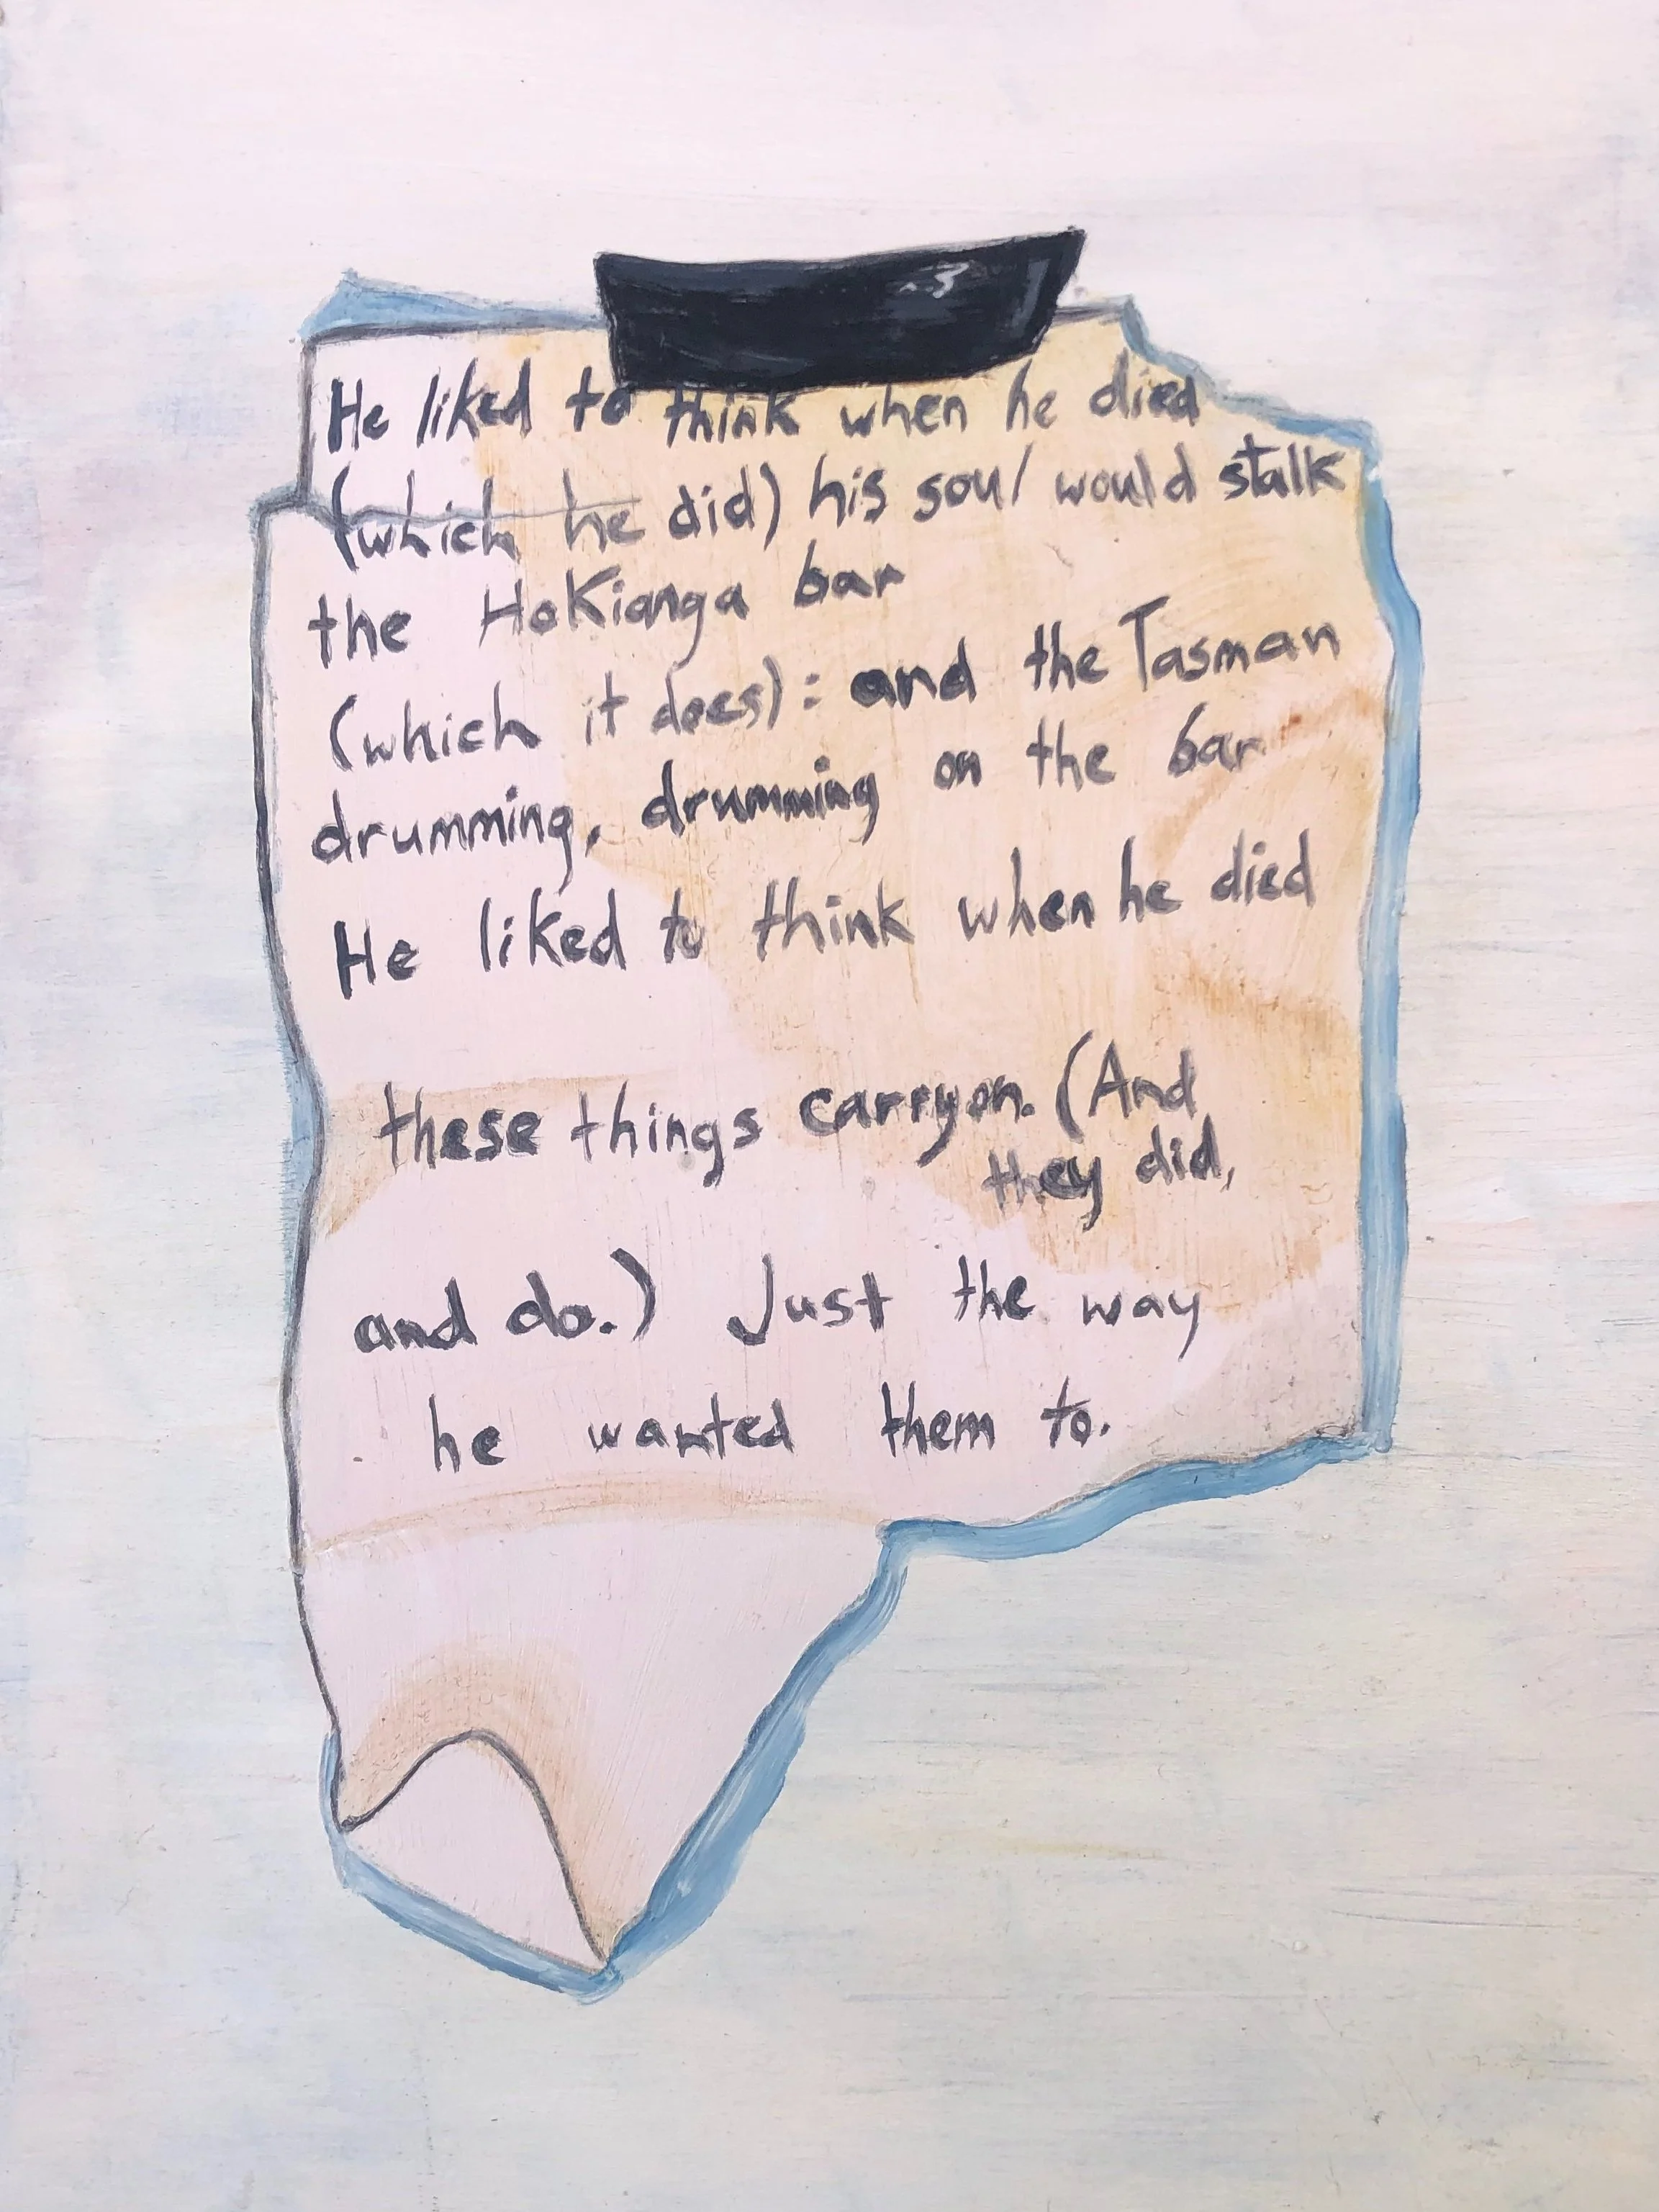 He liked to think when he died
(which he did) his soul would stalk
the Hokianga bar
(which it does): and the Tasman
drumming, drumming on the bar
He liked to think when he died
these things carry on. (And
they did,
and do.) Just the way
he wanted them to.